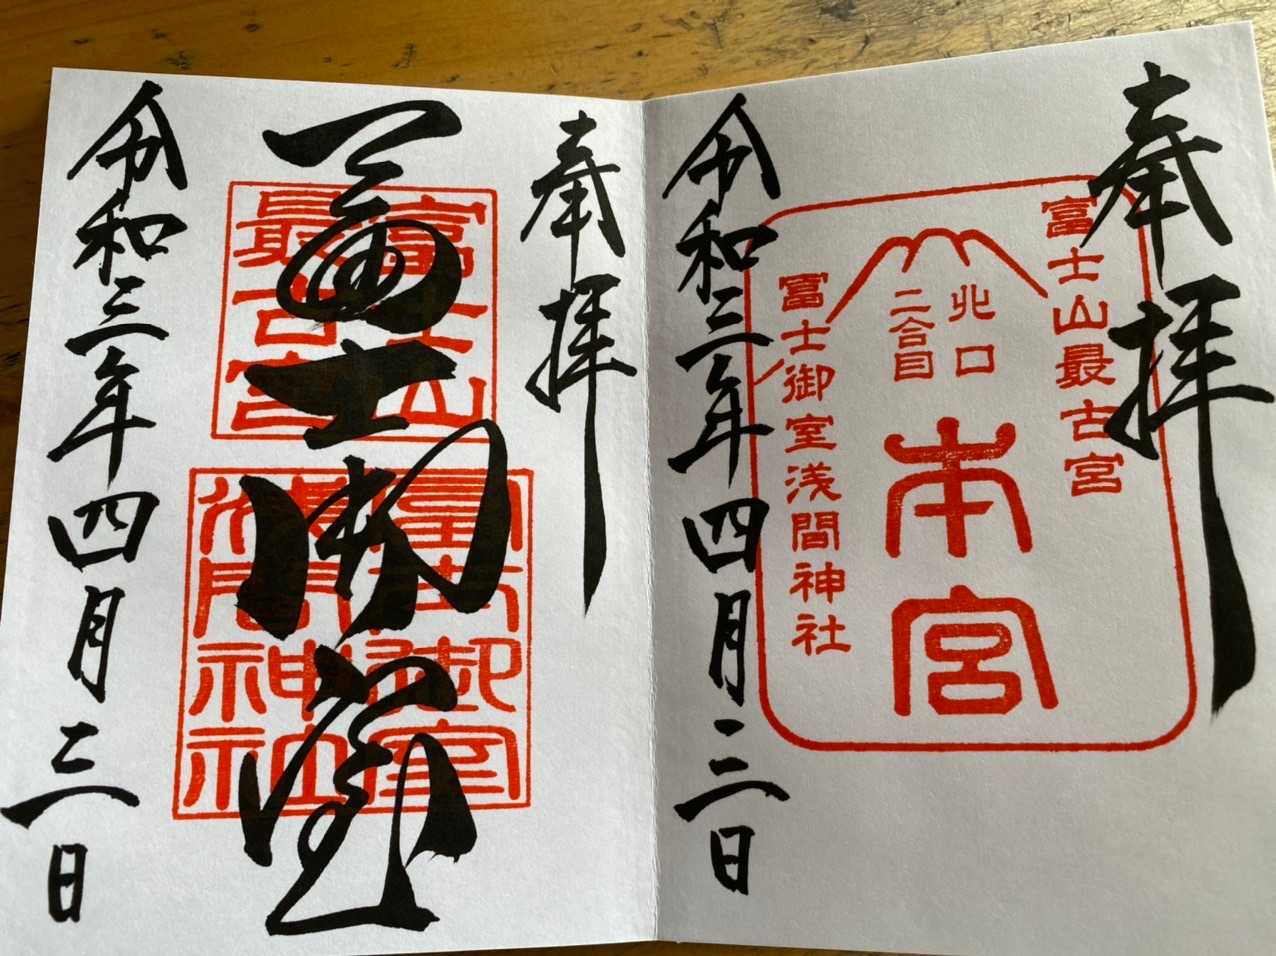 奉拝
富士山最古宮
北口
二合目
本宮
富士御室浅間神社
令和三年四月三日
奉拝
冨士御室
富士山
最古宮
冨士御室
浅間神社
令和三年四月三日